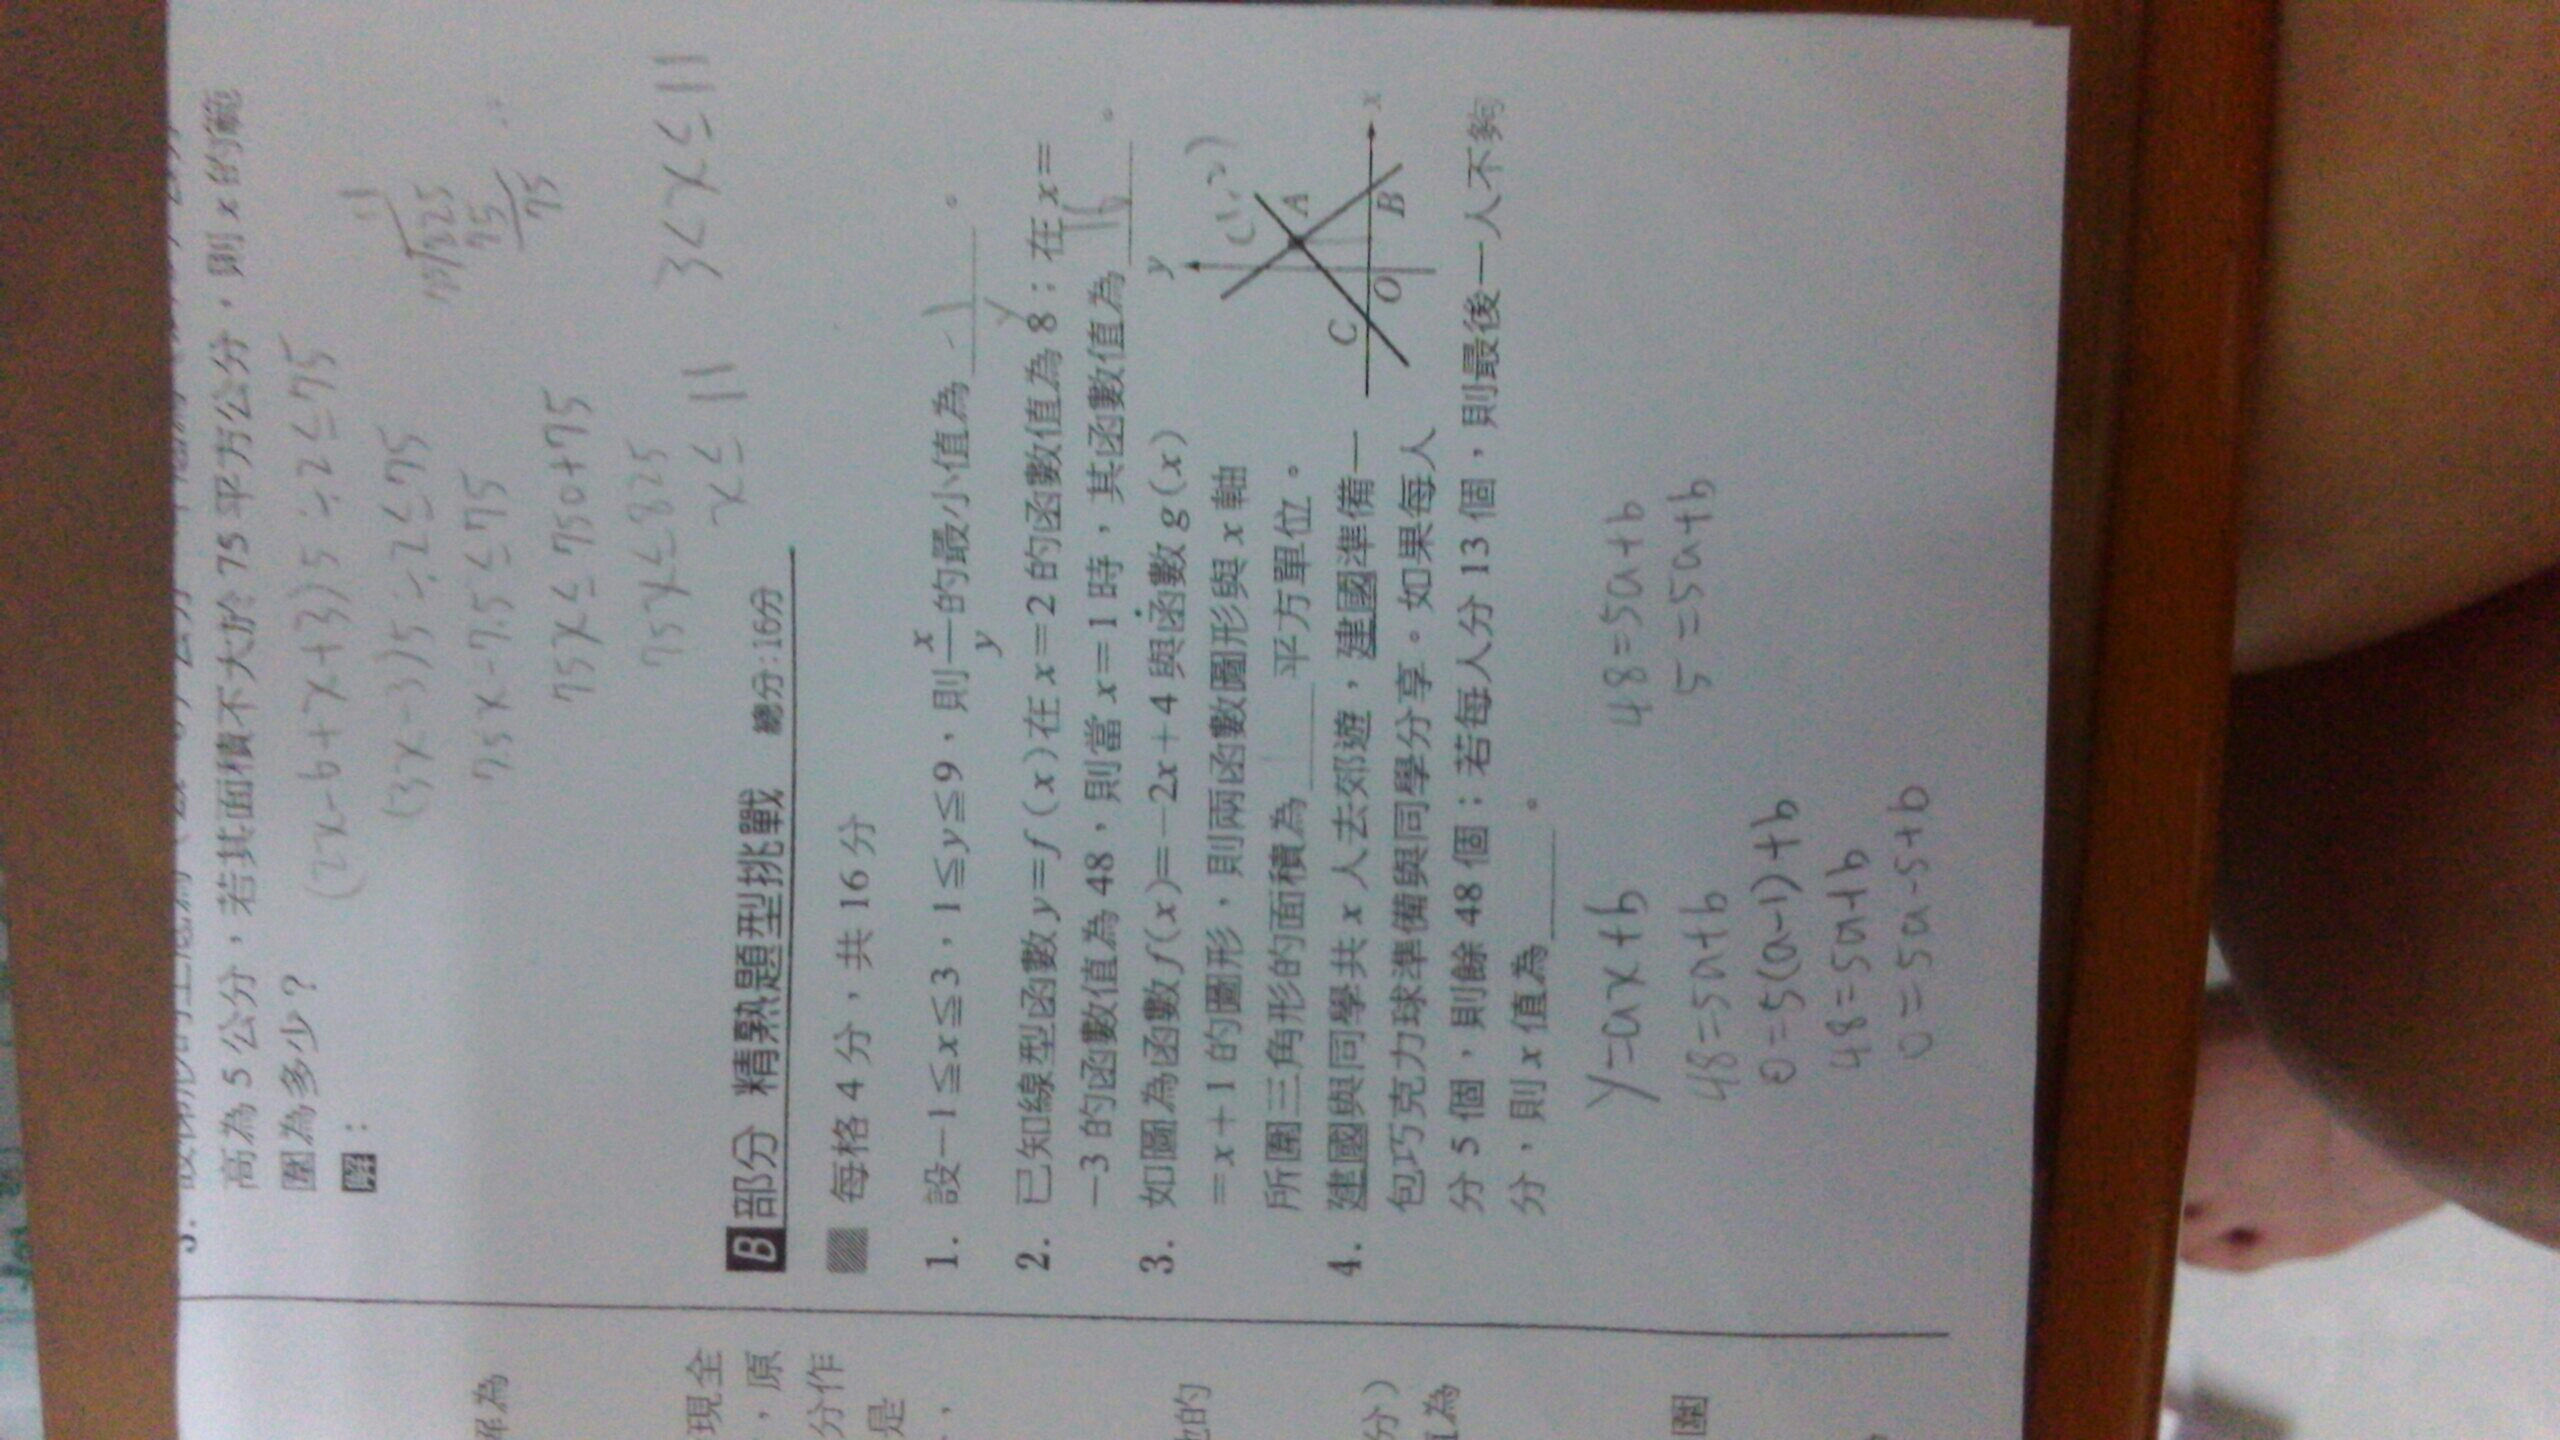 高為 5 公分，若其面積不大於 75 平方公分，則 x 的範
圍為多少？
解：
(2x-6+x+3)5÷2≤75
(3x-3)5÷2≤75
7.5x-7.5≤75
75x≤750+75
75x≤825
x≤11
3<x≤11
11
75/825
75
75
B部分 精熟題型挑戰 總分：16分
每格 4 分，共 16 分
1. 設－1≦x≦3，1≦y≦9，則 x/y 的最小值為 -1 。
2. 已知線型函數 y＝f (x) 在 x＝2 的函數值為 8；在 x＝
－3 的函數值為 48，則當 x＝1 時，其函數值為 16 。
3. 如圖為函數 f(x)＝－2x＋4 與函數 g(x)
＝x＋1 的圖形，則兩函數圖形與 x 軸
所圍三角形的面積為 平方單位。
y
(1,2)
A
C
O
B
x
4. 建國與同學共 x 人去郊遊，建國準備一
包巧克力球準備與同學分享。如果每人
分 5 個，則餘 48 個；若每人分 13 個，則最後一人不夠
分，則 x 值為 。
y=ax+b
48=5a+b
0=5(a-1)+b
48=5a+b
0=5a-5+b
48=5a+b
5=5a+b
解為
現全
，原
分作
是
，
他的
分）
值為
圍